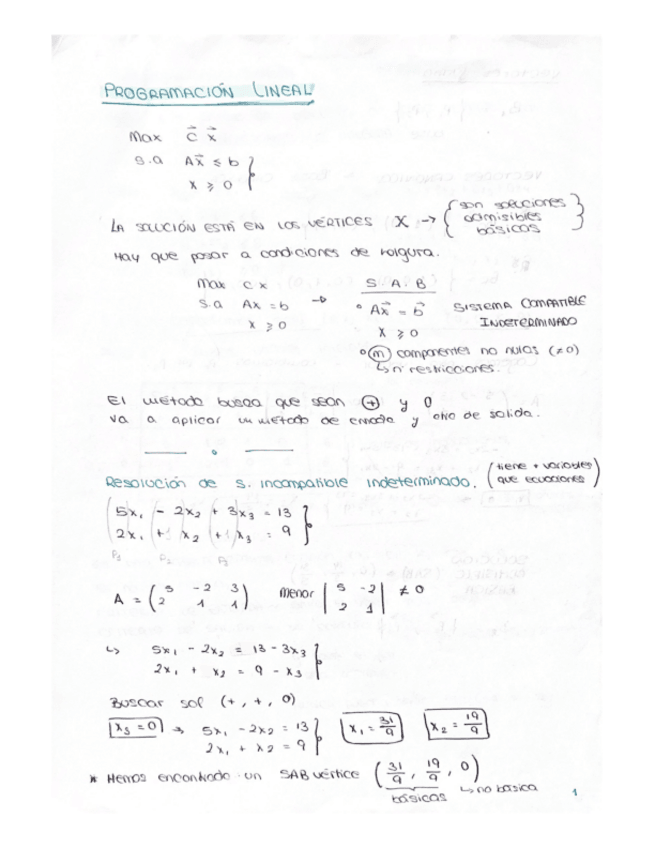 PROGRAMACIÓN LINEAL
Max c⃗ x⃗
s.a Ax⃗ ≤ b
x ≥ 0
LA SOLUCIÓN ESTÁ EN LOS VÉRTICES X → { son soluciones admisibles básicas }
Hay que pasar a condiciones de holgura.
Max c x → S.A.B
s.a Ax = b
x ≥ 0
• Ax⃗ = b⃗ SISTEMA COMPATIBLE INDETERMINADO
x ≥ 0
• (m) componentes no nulos (≠0)
↳ nº restricciones.
El método busca que sean (+) y 0
va a aplicar un método de entrada y otro de salida.
Resolución de s. incompatible indeterminado. (tiene + variables que ecuaciones)
5x₁ - 2x₂ + 3x₃ = 13
2x₁ + x₂ + x₃ = 9
P₁ P₂ P₃
A = ( 5 -2 3
2 1 1 )
Menor | 5 -2
2 1 | ≠ 0
↳ 5x₁ - 2x₂ = 13 - 3x₃
2x₁ + x₂ = 9 - x₃
Buscar sol (+, +, 0)
x₃ = 0 → 5x₁ - 2x₂ = 13
2x₁ + x₂ = 9
x₁ = 31/9 x₂ = 19/9
* Hemos encontrado un SAB vértice (31/9, 19/9, 0)
básicas ↳ no básica
1